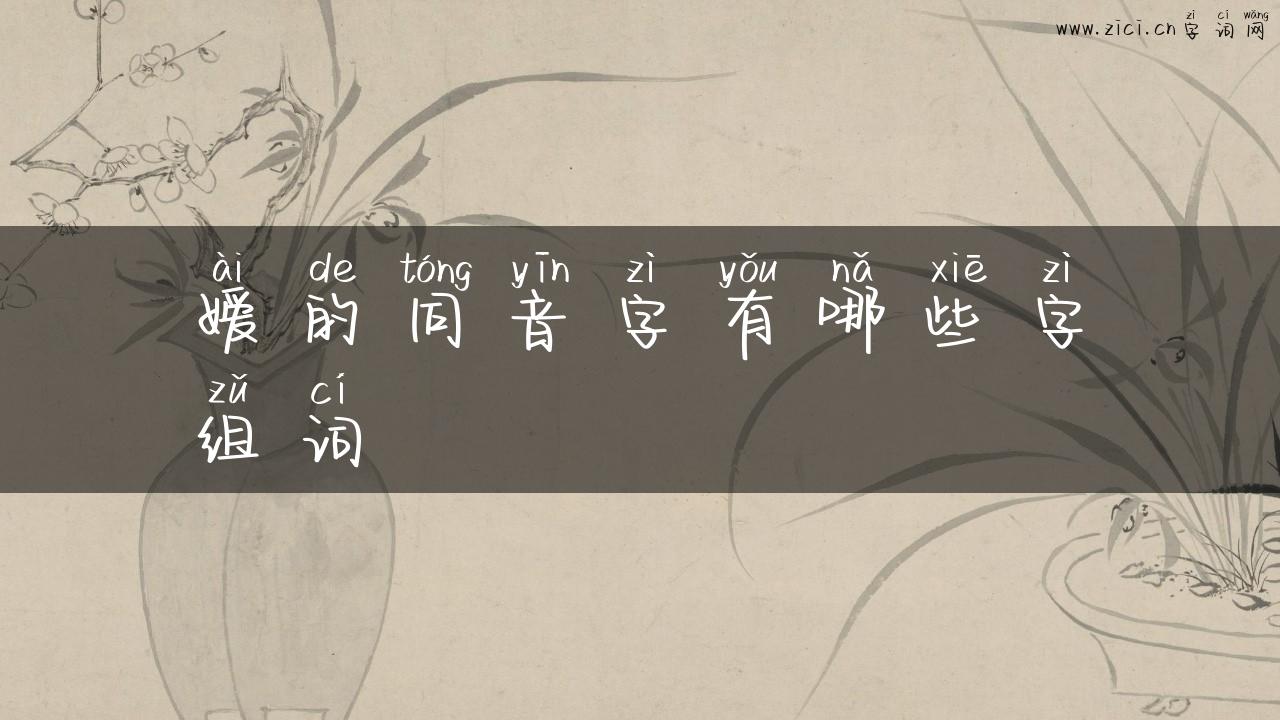 zì cí wǎng
www.zici.cn 字 词 网
ài de tóng yīn zì yǒu nǎ xiē zì
嫒 的 同 音 字 有 哪 些 字
zǔ cí
组 词